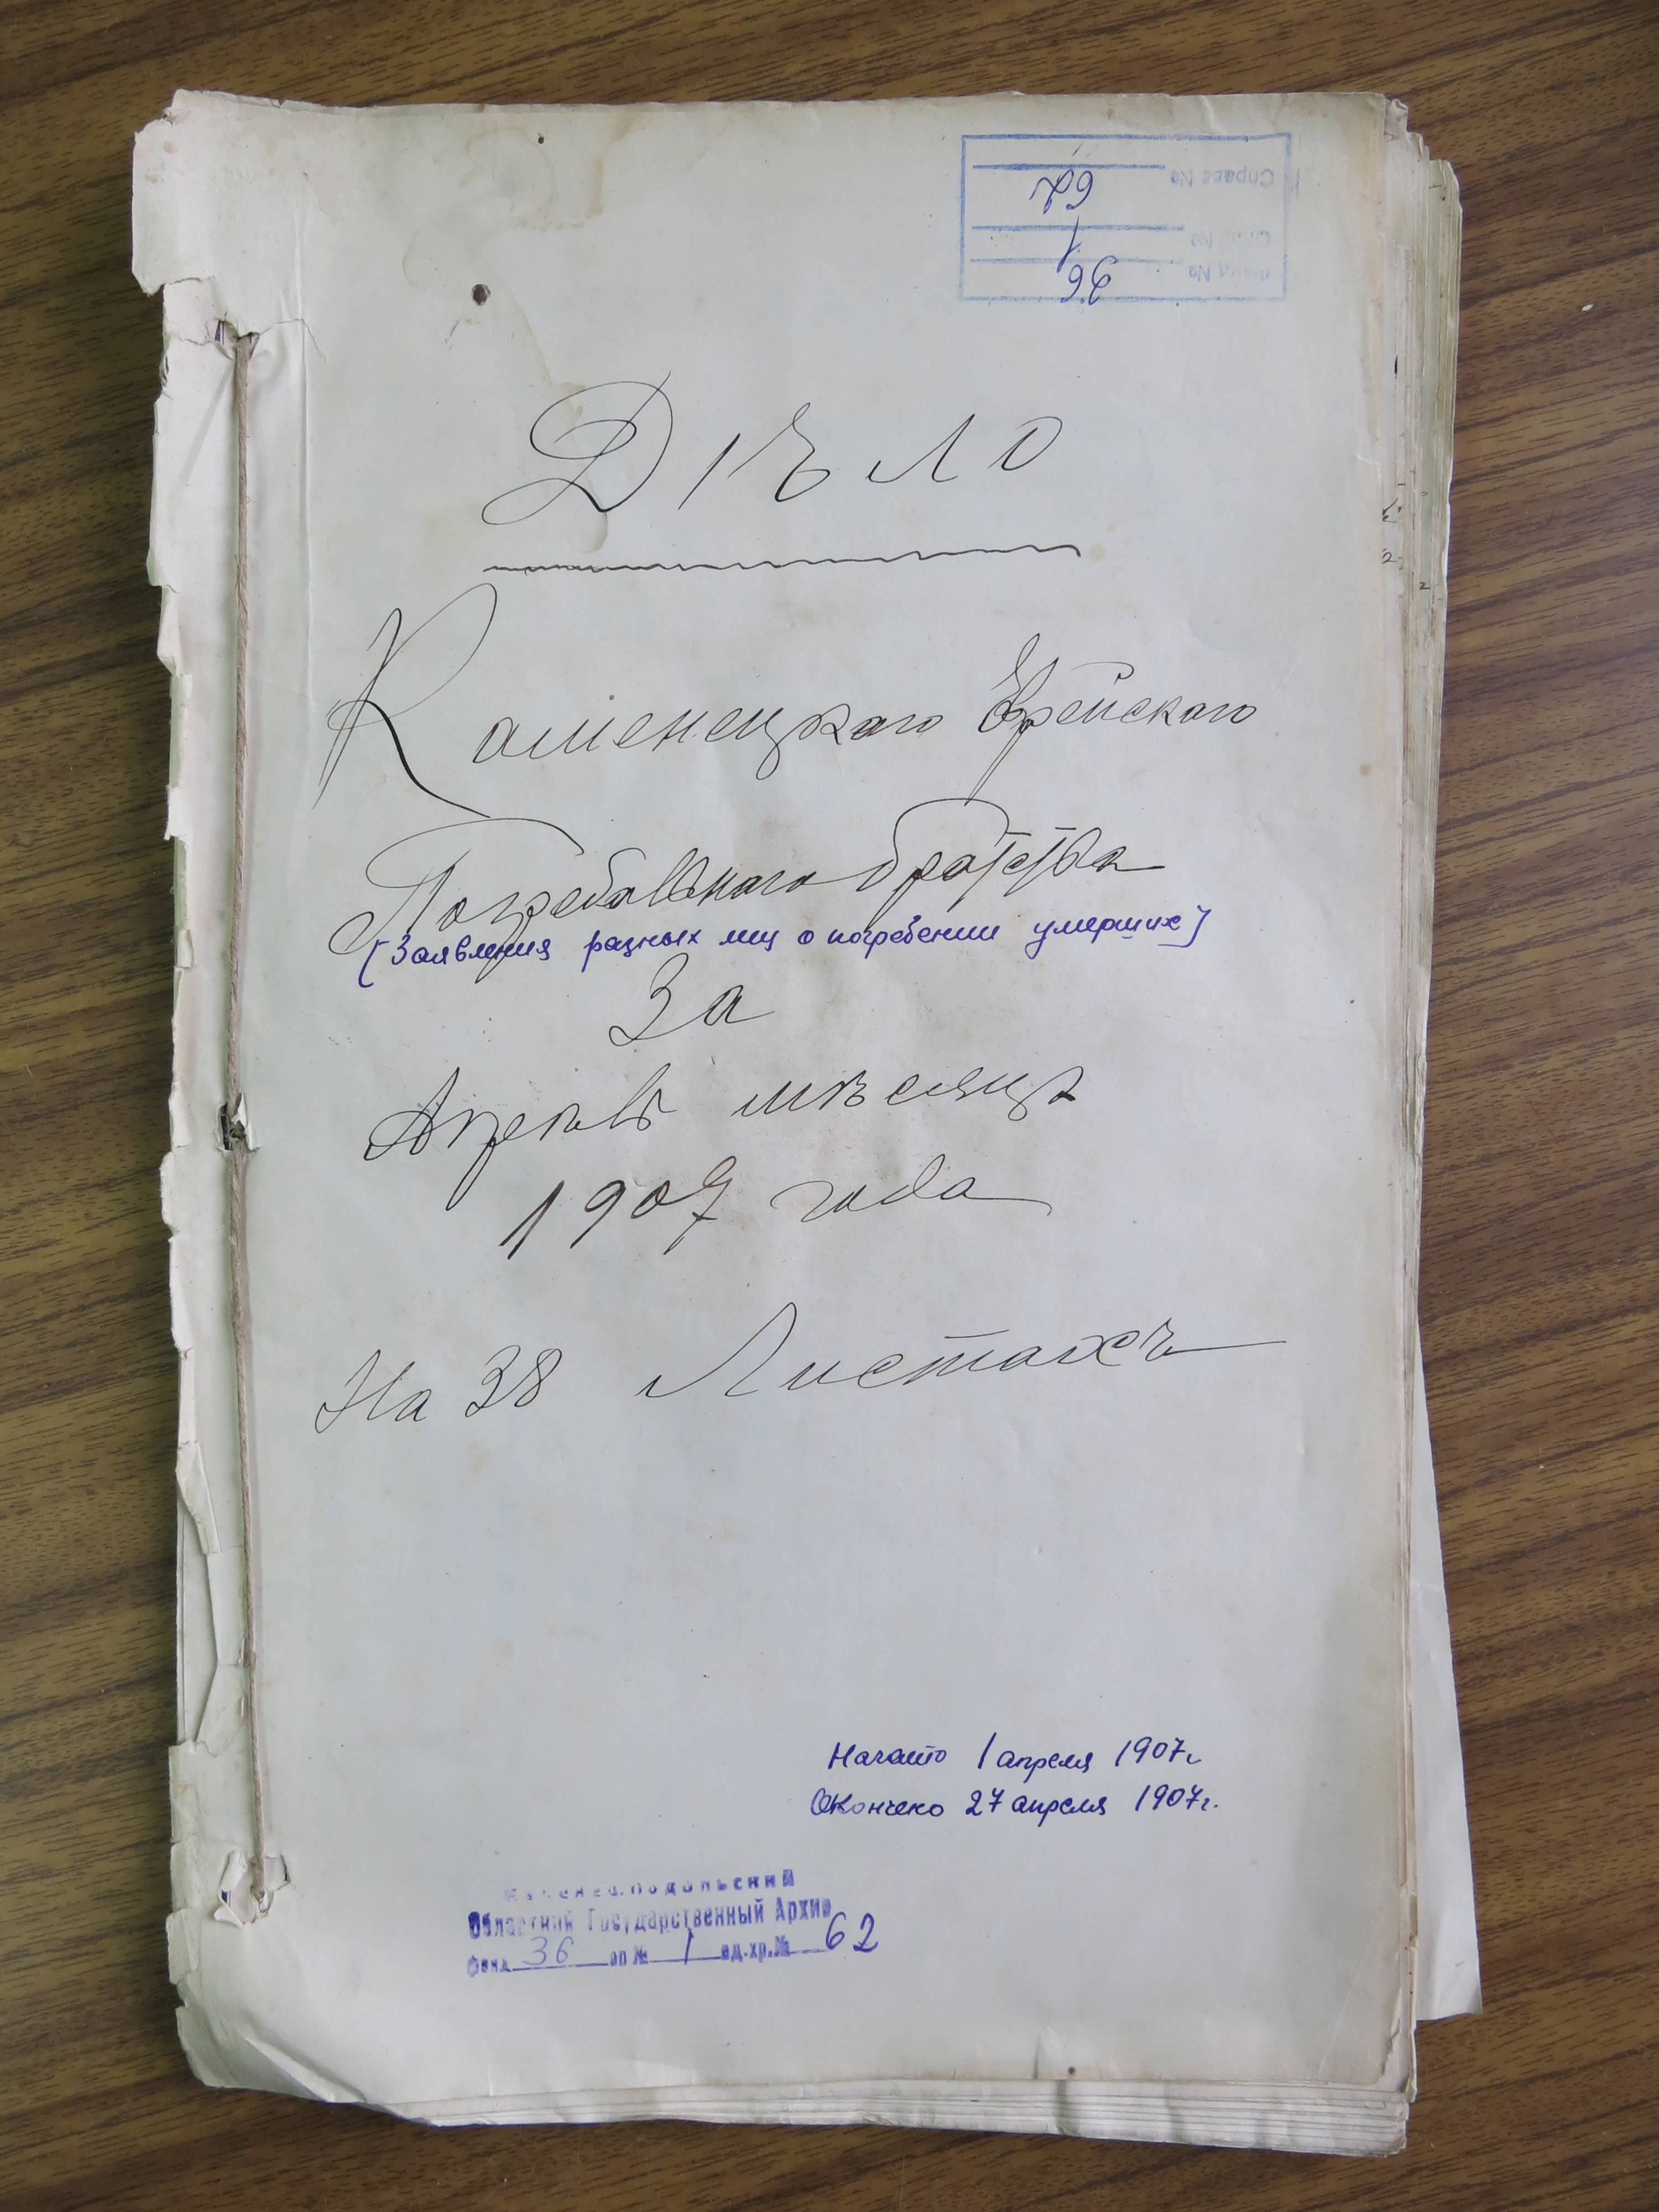 Справа №
62
Опис №
1
Фонд №
36
Дѣло
Каменецкаго Еврейскаго
Погребальнаго братства
(Заявления разных лиц о погребении умерших)
За
Апрель мѣсяцъ
1907 года
На 38 Листахъ
Начато 1 апреля 1907г
Окончено 27 апреля 1907г.
Каменец-Подольский
Областной Государственный Архив
Фонд 36 оп № 1 ед.хр.№ 62